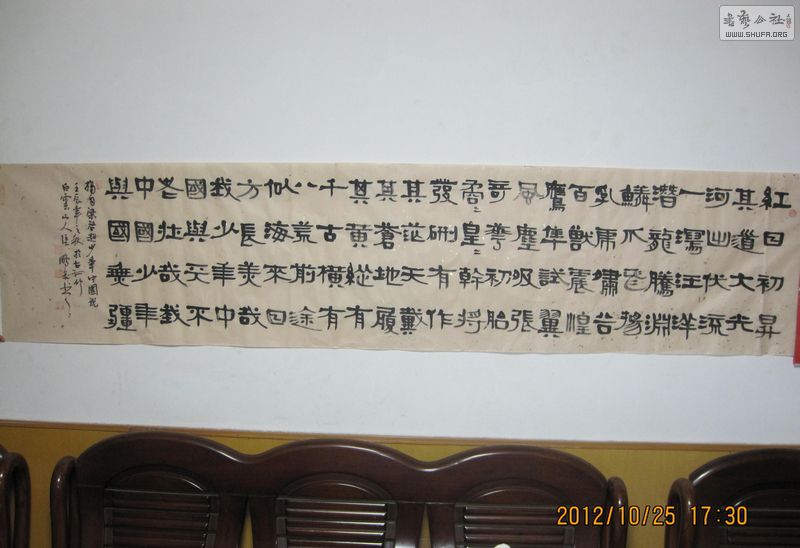 紅日初昇
其道大光
河出伏流
一瀉汪洋
潛龍騰淵
鱗爪飛揚
乳虎嘯谷
百獸震惶
鷹隼試翼
風塵吸張
奇華初胎
矞〻皇〻幹將
發硎有作
其茫天戴
其蒼地履
其黃縱有
千古橫有
八荒前途
似海來日
方長美哉
我少年中
國與天不
老壯哉我
中國少年
與國無疆
摘自梁啓超少年中國說
壬辰年之秋於
白雲山人
書藝公社
WWW.SHUFA.ORG
2012/10/25 17:30